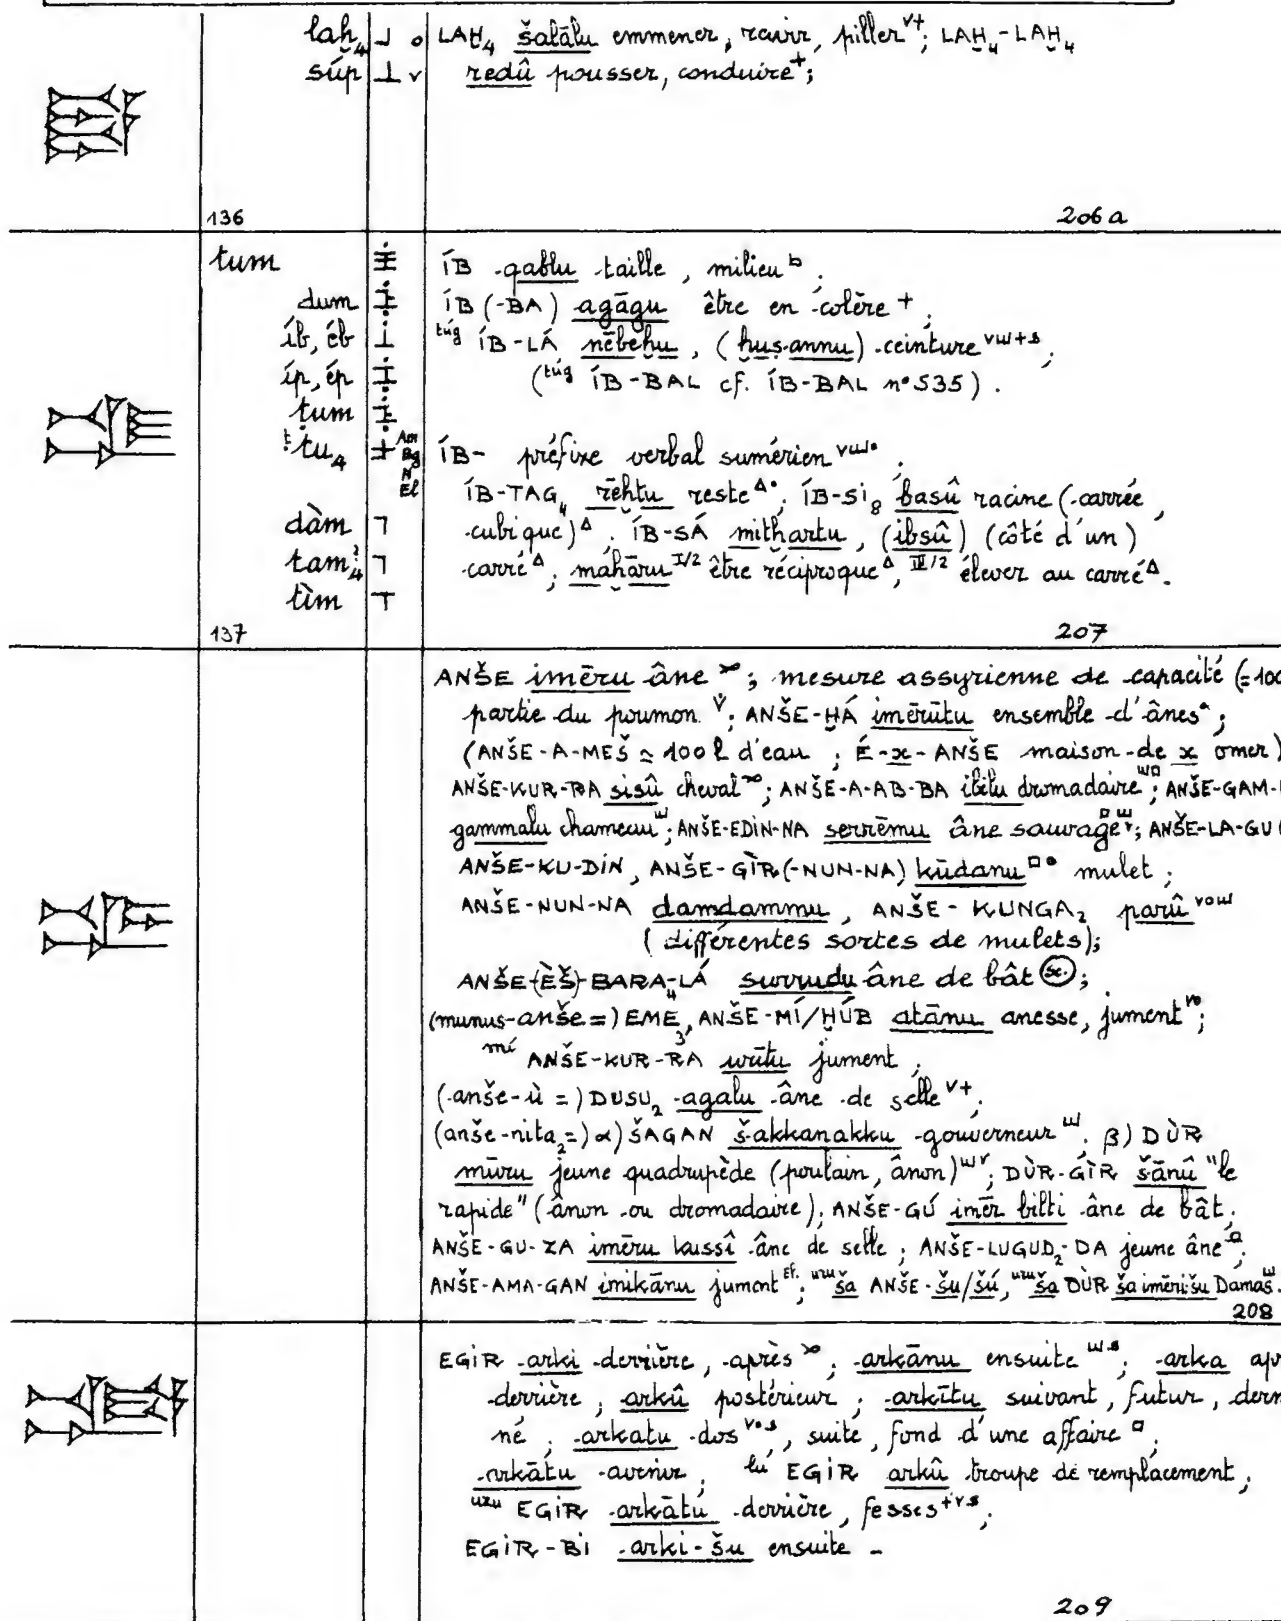 laḫ₄ LAḪ₄ šalālu emmener, ravir, piller v+; LAḪ₄-LAḪ₄
súp v redû pousser, conduire +;
136 206a
tum ÍB qablu taille, milieu b.
dum ÍB (-BA) agāgu être en colère +,
íb, éb túg ÍB-LÁ nēbeḫu, (ḫuṣannu) ceinture
íp, ép (túg ÍB-BAL cf. ÍB-BAL n° 535).
ṭum
ṭu₄ Am Bg N El ÍB- préfixe verbal sumérien
ÍB-TAG₄ rēḫtu reste; ÍB-SI₈ basû racine (carrée,
dàm cubique) Δ, ÍB-SÁ mitḫartu, (ibsû) (côté d'un)
tam₄ carré Δ, maḫāru I/2 être réciproque Δ, III/2 élever au carré Δ.
tìm
137 207
ANŠE imēru âne; mesure assyrienne de capacité (=100
partie du poumon v; ANŠE-ḪÁ imērūtu ensemble d'ânes;
(ANŠE-A-MEŠ ≃ 100 l d'eau; É-x-ANŠE maison de x omer)
ANŠE-KUR-RA sisû cheval; ANŠE-A-AB-BA ibilu dromadaire; ANŠE-GAM-
gammalu chameau; ANŠE-EDIN-NA serrēmu âne sauvage; ANŠE-LA-GU(
ANŠE-KU-DIN, ANŠE-GÌR(-NUN-NA) kūdanu mulet;
ANŠE-NUN-NA damdammu, ANŠE-KUNGA₂ parû
(différentes sortes de mulets);
ANŠE-(ÈŠ)-BARA₄-LÁ surrudu âne de bât (sc.);
(munus-anše =) EME₃, ANŠE-MÍ/ḪÚB atānu anesse, jument;
mí ANŠE-KUR-RA urītu jument,
(anše-ù =) DUSU₂ agalu âne de selle v+;
(anše-nita₂ =) α) ŠAGAN šakkanakku gouverneur, β) DÙR
mūru jeune quadrupède (poulain, ânon); DÙR-GÌR šānû "le
rapide" (ânon ou dromadaire); ANŠE-GÚ imēr bilti âne de bât;
ANŠE-GU-ZA imēru kussî âne de selle; ANŠE-LUGUD₂-DA jeune âne;
ANŠE-AMA-GAN imikānu jument; uru ša ANŠE-šu/šú, uru ša DÙR ša imērišu Damas.
208
EGIR arki derrière, après; arkānu ensuite; arka apr
derrière; arkû postérieur; arkītu suivant, futur, dern
né; arkatu dos, suite, fond d'une affaire;
arkātu avenir, lú EGIR arkû troupe de remplacement;
uzu EGIR arkātu derrière, fesses;
EGIR-BI arki-šu ensuite -
209